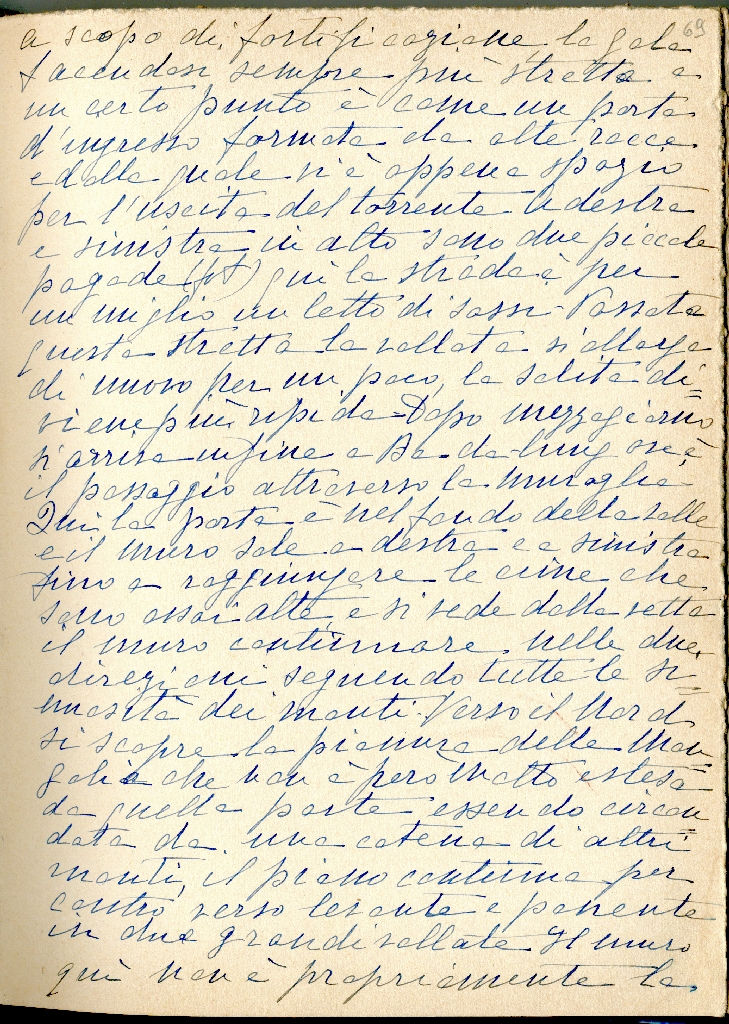 69
a scopo di fortificazione, la gola
facendosi sempre più stretta a
un certo punto è come un porta
d'ingresso formata da alte rocce
e dalla quale vi è appena spazio
per l'uscita del torrente. A destra
e sinistra in alto sono due piccole
pagode (ft) qui la strada è per
un miglio un letto di sassi - Passata
questa stretta la vallata si allarga
di nuovo per un poco, la salita di=
viene più ripida - Dopo mezzogiorno
si arriva infine a Ba-da-ling ove è
il passaggio attraverso la muraglia
Qui la porta è nel fondo della valle
e il muro sale a destra e a sinistra
fino a raggiungere le cime che
sono assai alte, e si vede dalla vetta
il muro continuare nelle due
direzioni seguendo tutte le si=
nuosità dei monti. Verso il Nord
si scopre la pianura della Mon=
golia che non è però molto estesa
da quella parte essendo circon=
data da una catena di altri
monti, il piano continua per
contro verso levante e ponente
in due grandi vallate Il muro
qui non è propriamente la